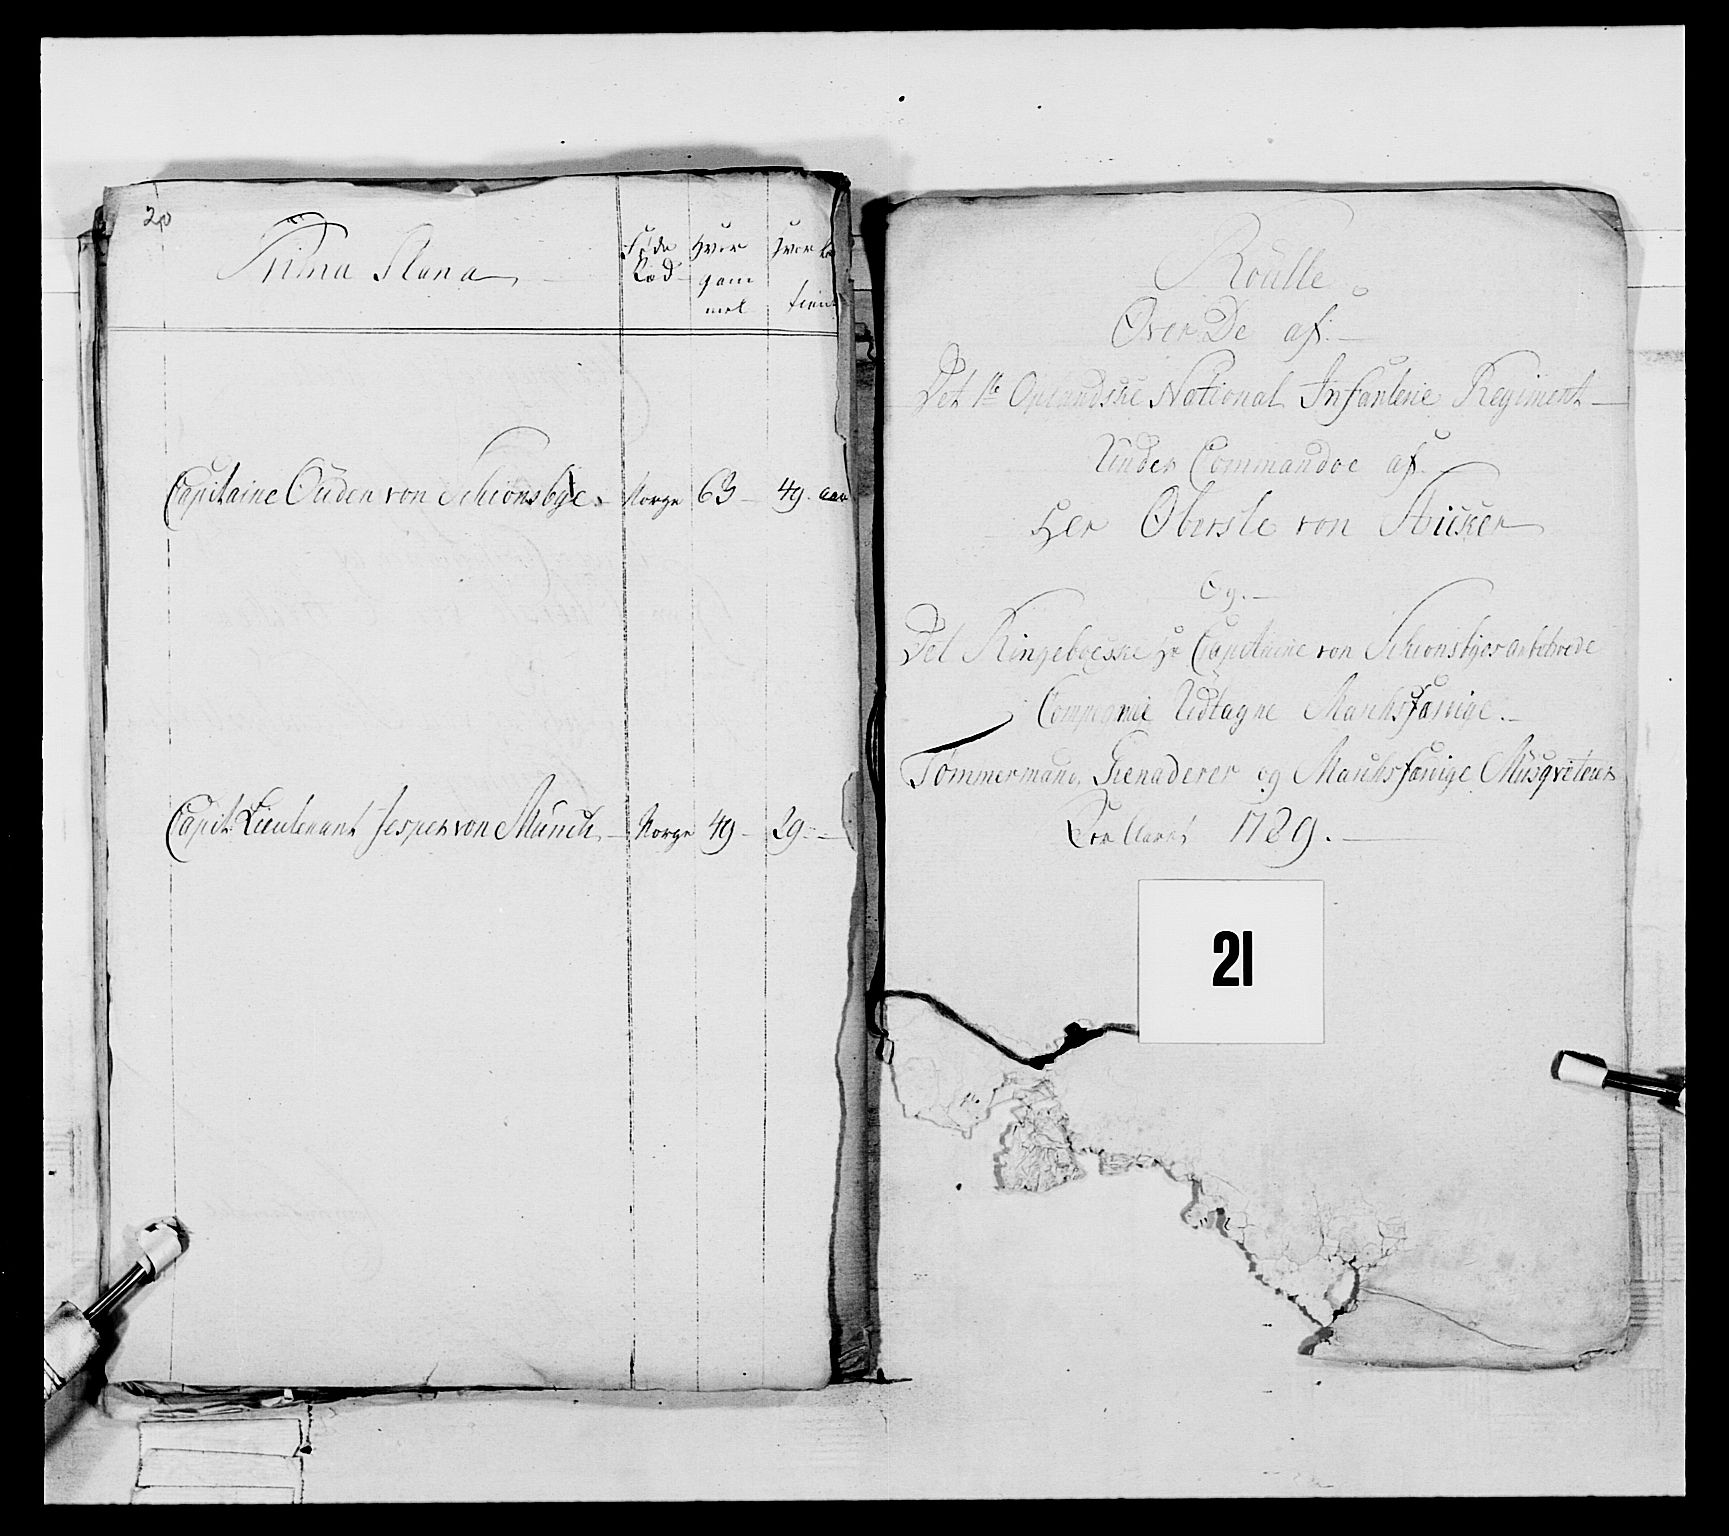 20
Prima Plana
Føde
Hvor
Hvor
Stæd
gam
mel
tient
Capitaine Ouden von Schionsbye. Norge 63 49. aar
Capit: Lieutenant Jesper von Münch Norge 49 29.
Roulle
Over De af
Det 1te Oplandske National Infanterie Regiment
Under Commandoe af
Her Oberste von Stricker
Og.
Det Ringeboeske Hr Capitaine von Schionsbyes
Compagnie Udtagne
Tømmermænd, Grenaderer og Musqveteerer
For Aaret 1789.
21